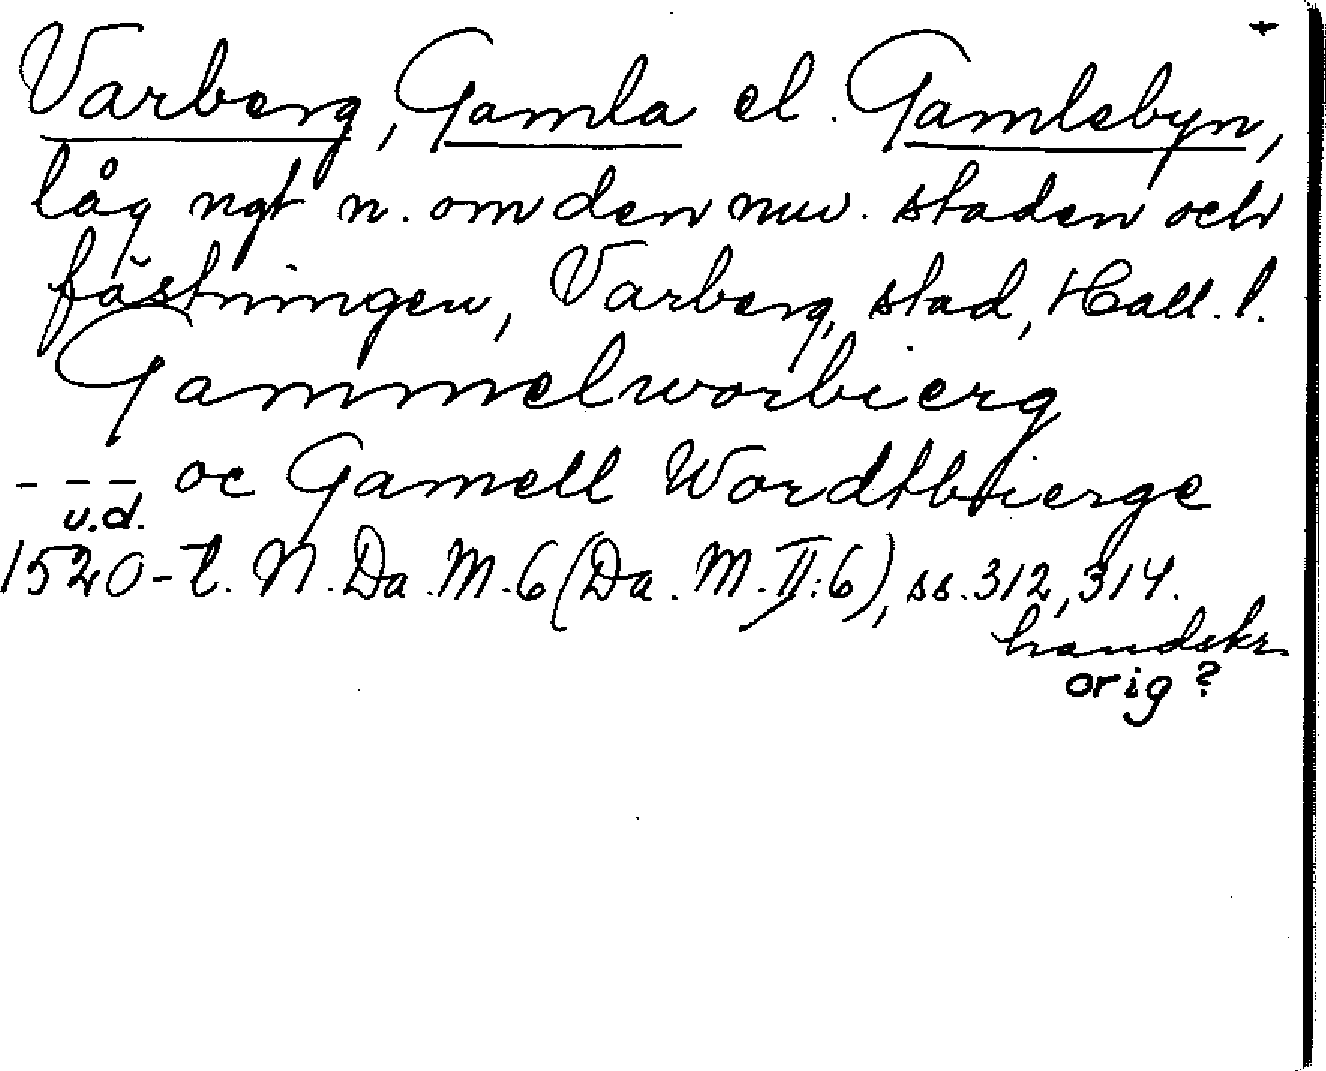 +
Varberg, Gamla el. Gamlebyn,
låg ngt n. om den nuv. staden och
fästningen, Varberg, stad, Hall. l.
Gammelworbierg
--- oc Gamell Wordtbierge
u.d.
1520-t. N. Da. M. 6 (Da. M. II:6), ss. 312, 314.
handskr.
orig?